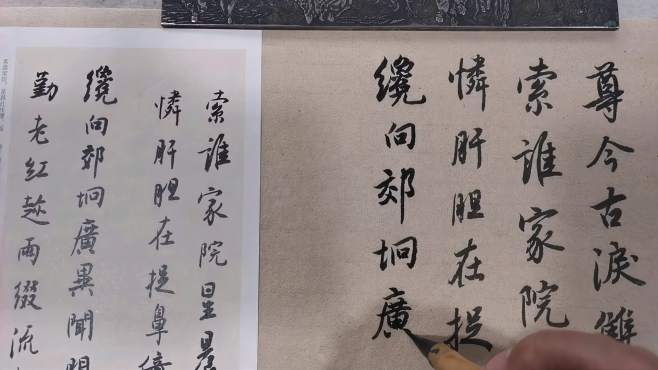 尊今古淚雙
索誰家院
憐肝胆在捉
纔向郊坰廣
索誰家院星晷
憐肝胆在捉鼻
纔向郊坰廣異聞
勤老紅菱雨綴流